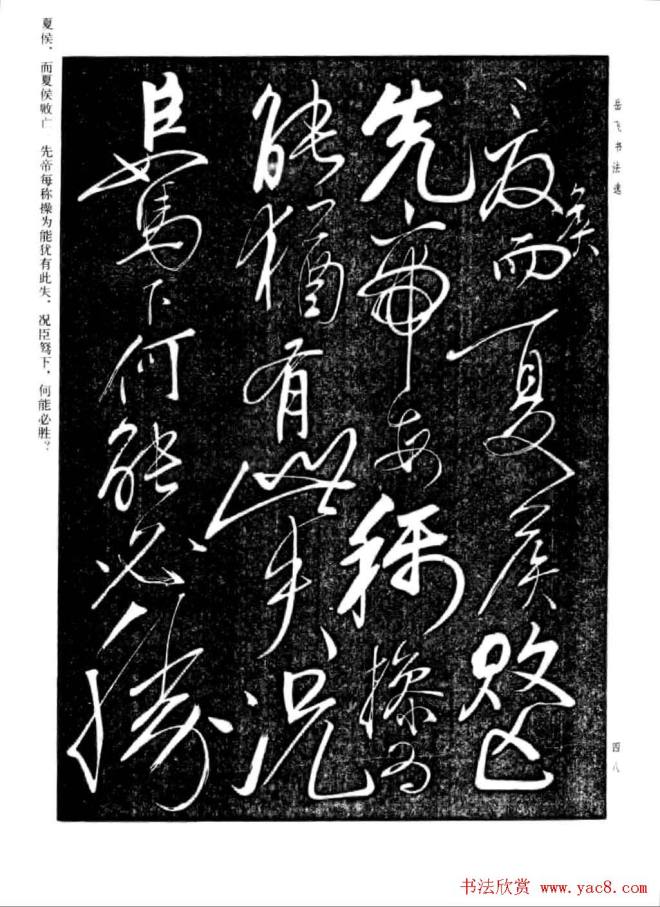 岳飞书法选
四八
夏侯而夏侯敗亡
先帝每稱操为
能猶有此失況
臣駑下何能必勝
夏侯，而夏侯败亡 先帝每称操为能犹有此失，况臣驽下，何能必胜？
书法欣赏 www.yac8.com